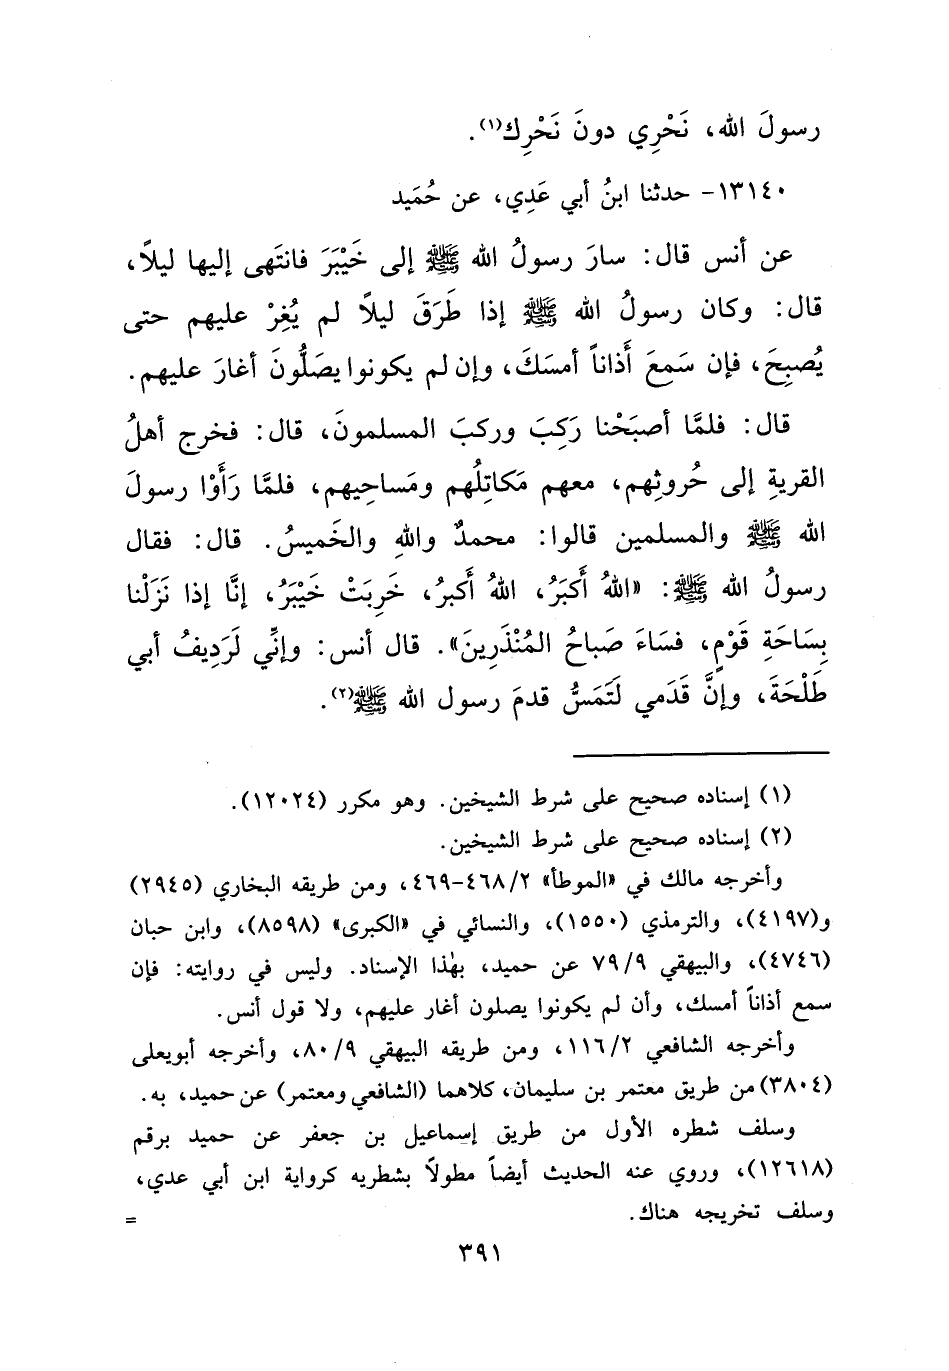 رسولَ الله، نَحْرِي دونَ نَحْرِك(١).
١٣١٤٠- حدثنا ابنُ أبي عَدِي، عن حُمَيد
عن أنس قال: سارَ رسولُ الله ﷺ إلى خَيْبَرَ فانتَهى إليها ليلًا،
قال: وكان رسولُ الله ﷺ إذا طَرَقَ ليلًا لم يُغِرْ عليهم حتى
يُصبِحَ، فإن سَمِعَ أَذاناً أمسَكَ، وإن لم يكونوا يصَلُّونَ أغارَ عليهم.
قال: فلمَّا أصبَحْنا رَكِبَ وركبَ المسلمونَ، قال: فخرج أهلُ
القريةِ إلى حُروثِهم، معهم مَكاتِلُهم ومَساحِيهم، فلمَّا رَأَوْا رسولَ
الله ﷺ والمسلمين قالوا: محمدٌ واللهِ والخَميسُ. قال: فقال
رسولُ الله ﷺ: «اللهُ أَكبَرُ، اللهُ أَكبرُ، خَرِبَتْ خَيْبَرُ، إنَّا إذا نَزَلْنا
بِسَاحَةِ قَوْمٍ، فسَاءَ صَباحُ المُنْذَرِينَ». قال أنس: وإنِّي لَرَدِيفُ أبي
طَلْحَةَ، وإنَّ قَدَمي لَتَمَسُّ قدمَ رسول الله ﷺ(٢).
(١) إسناده صحيح على شرط الشيخين. وهو مكرر (١٢٠٢٤).
(٢) إسناده صحيح على شرط الشيخين.
وأخرجه مالك في «الموطأ» ٤٦٨/٢-٤٦٩، ومن طريقه البخاري (٢٩٤٥)
و(٤١٩٧)، والترمذي (١٥٥٠)، والنسائي في «الكبرى» (٨٥٩٨)، وابن حبان
(٤٧٤٦)، والبيهقي ٧٩/٩ عن حميد، بهٰذا الإسناد. وليس في روايته: فإن
سمع أذاناً أمسك، وأن لم يكونوا يصلون أغار عليهم، ولا قول أنس.
وأخرجه الشافعي ١١٦/٢، ومن طريقه البيهقي ٨٠/٩، وأخرجه أبويعلى
(٣٨٠٤) من طريق معتمر بن سليمان، كلاهما (الشافعي ومعتمر) عن حميد، به.
وسلف شطره الأول من طريق إسماعيل بن جعفر عن حميد برقم
(١٢٦١٨)، وروي عنه الحديث أيضاً مطولًا بشطريه كرواية ابن أبي عدي،
وسلف تخريجه هناك. =
٣٩١